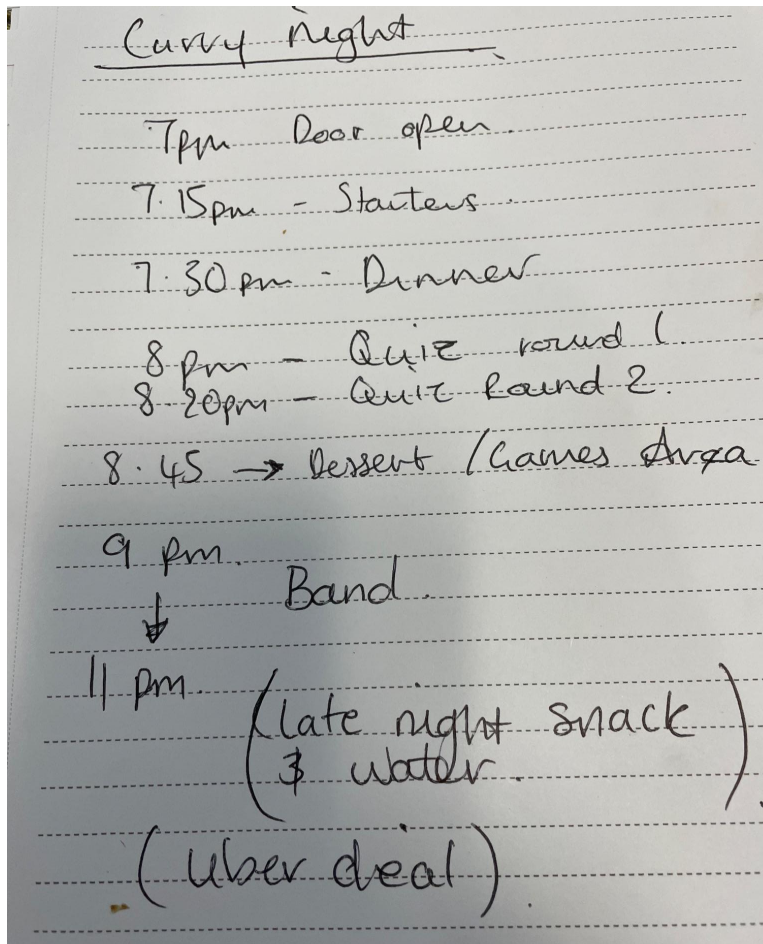 Curry night
7pm Door open.
7.15pm - Starters.
7.30pm - Dinner
8pm - Quiz round 1.
8.20pm - Quiz Round 2.
8.45 → Dessert / Games Area
9 pm.
↓ Band.
11 pm.
(late night snack
& water.)
(Uber deal).